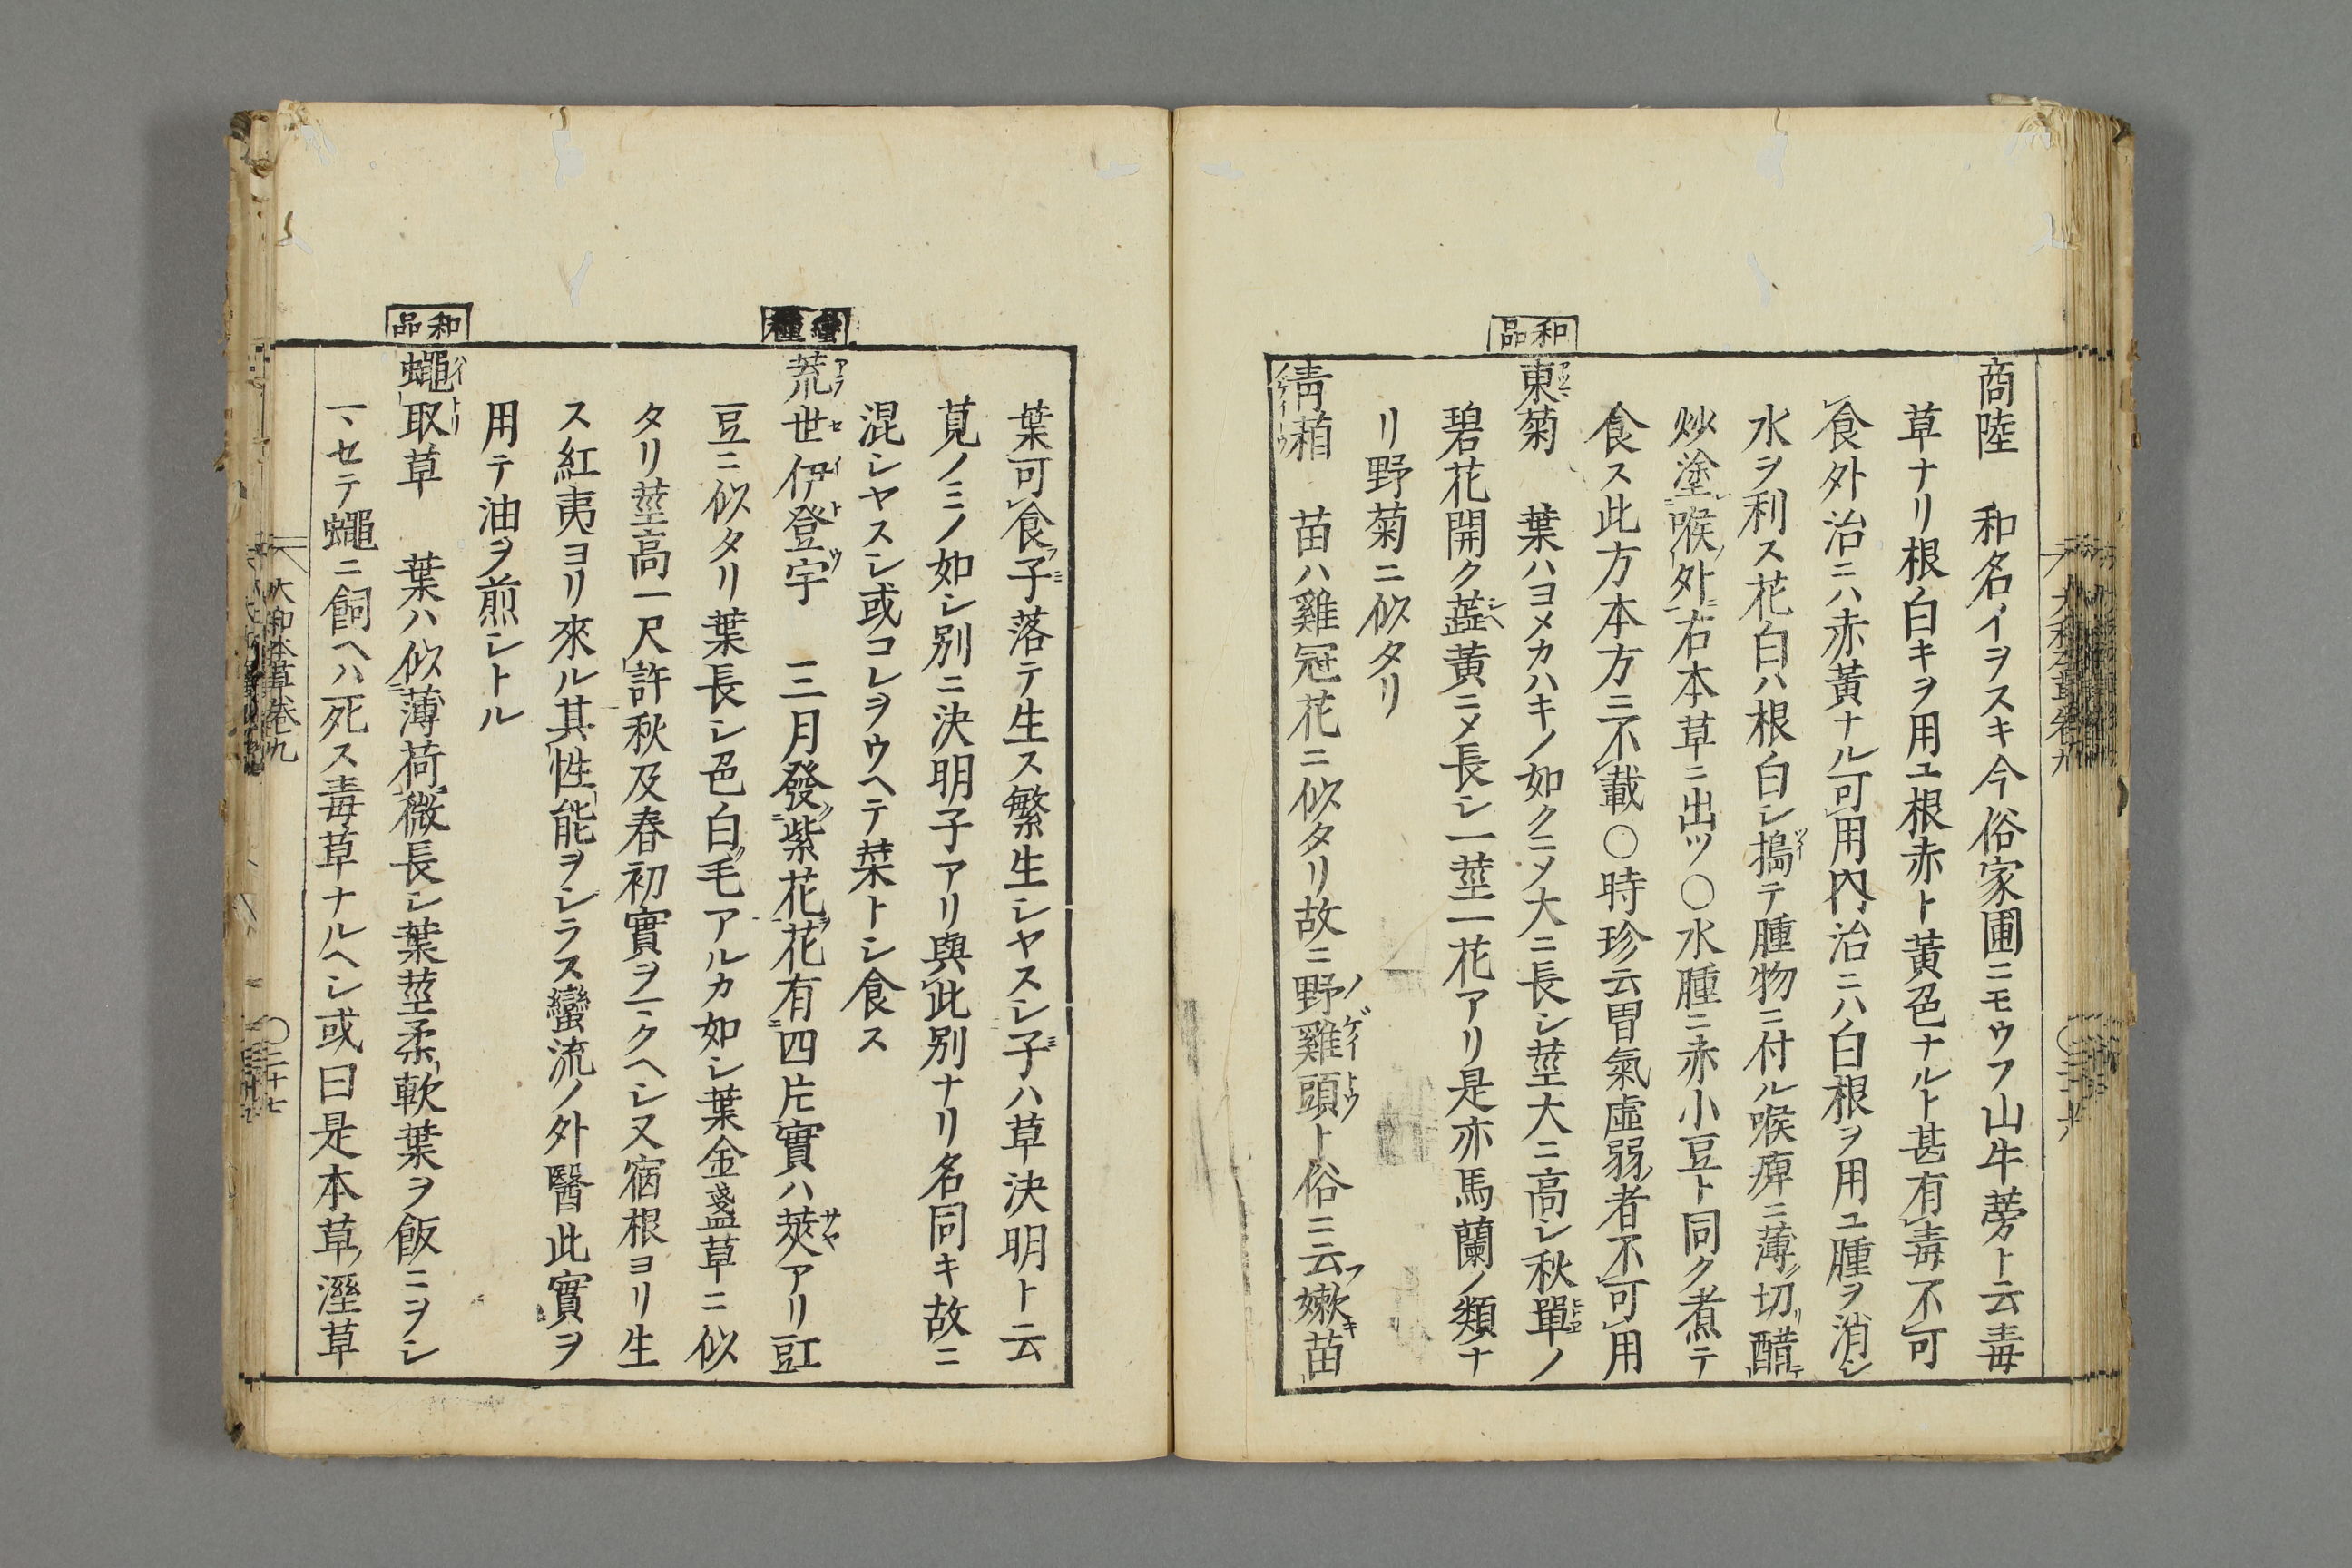 商陸　和名イヲスキ今俗家圃ニモウフ山牛蒡ト云毒
草ナリ根白キヲ用ユ根赤ト黄色ナルト甚有毒不可
食外治ニハ赤黄ナル可用內治ニハ白根ヲ用ユ腫ヲ消シ
水ヲ利ス花白ハ根白シ搗テ腫物ニ付ル喉痺ニ薄切醋
炒塗喉外右本草ニ出ツ○水腫ニ赤小豆ト同ク煮テ
食ス此方本方ニ不載○時珍云胃氣虛弱者不可用
和品
東菊　葉ハヨメカハキノ如クニメ大ニ長シ莖大ニ高シ秋單ノ
碧花開ク蘂黄ニメ長シ一莖一花アリ是亦馬蘭ノ類ナ
リ野菊ニ似タリ
青葙　苗ハ雞冠花ニ似タリ故ニ野雞頭ト俗ニ云嫩苗
葉可食子落テ生ス繁生シヤスシ子ハ草決明ト云
莧ノミノ如シ別ニ決明子アリ與此別ナリ名同キ故ニ
混シヤスシ或コレヲウヘテ菜トシ食ス
蠻種
荒世伊登宇　三月發紫花花有四片實ハ莢アリ豇
豆ニ似タリ葉長シ色白毛アルカ如シ葉金盞草ニ似
タリ莖高一尺許秋及春初實ヲマクヘシ又宿根ヨリ生
ス紅夷ヨリ來ル其性能ヲシラス蠻流ノ外醫此實ヲ
用テ油ヲ煎シトル
和品
蠅取草　葉ハ似薄荷微長シ葉莖柔軟葉ヲ飯ニヲシ
マセテ蠅ニ飼ヘハ死ス毒草ナルヘシ或曰是本草濕草
大和本草卷九
○三十七